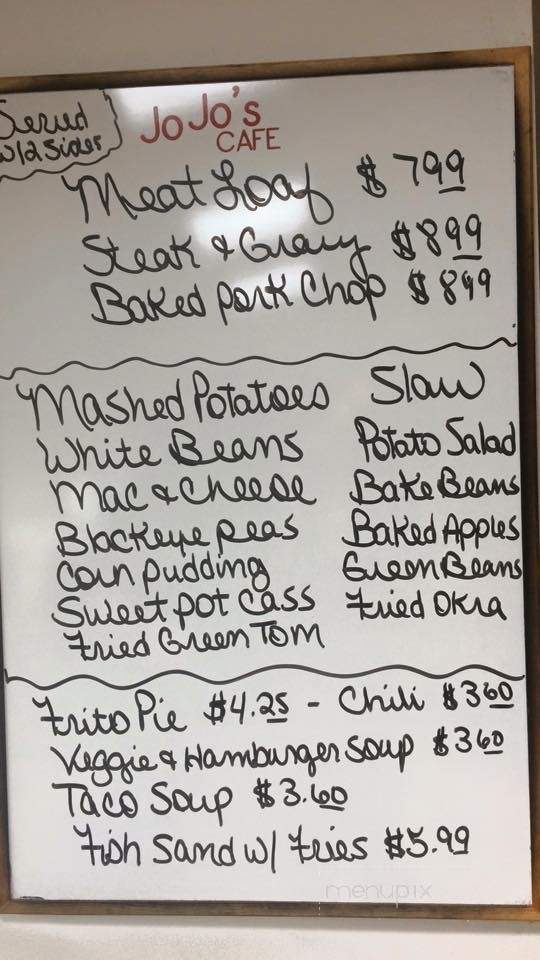 Served
w/2 Sides
JoJo's
CAFE
Meat Loaf $799
Steak & Gravy $899
Baked Pork Chop $899
Mashed Potatoes Slaw
White Beans Potato Salad
Mac & Cheese Bake Beans
Blackeye peas Baked Apples
Corn pudding Green Beans
Sweet pot Cass Fried Okra
Fried Green Tom
Frito Pie $4.25 - Chili $360
Veggie & Hamburger Soup $360
Taco Soup $3.60
Fish Sand w/ Fries $5.99
menupix